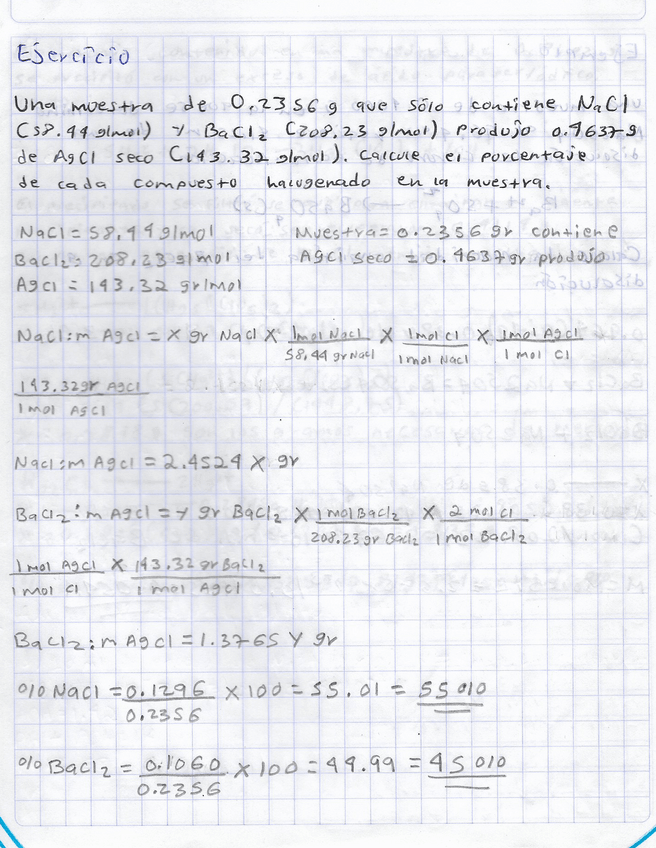 Ejercicio
Una muestra de 0.2356 g que sólo contiene NaCl
(58.44 g/mol) y BaCl₂ (208.23 g/mol) Produjo 0.4637g
de AgCl seco (143.32 g/mol). Calcule el porcentaje
de cada compuesto halogenado en la muestra.
NaCl = 58,44 g/mol Muestra = 0.2356 gr contiene
BaCl₂ = 208.23 g/mol AgCl seco = 0.4637 gr produjo
AgCl = 143.32 gr/mol
NaCl: m AgCl = X gr NaCl X 1mol NaCl / 58,44 gr NaCl X 1mol Cl / 1mol NaCl X 1mol AgCl / 1 mol Cl
143.32gr AgCl / 1 mol AgCl
NaCl: m AgCl = 2.4524 X gr
BaCl₂: m AgCl = y gr BaCl₂ X 1 mol BaCl₂ / 208.23 gr BaCl₂ X 2 mol Cl / 1 mol BaCl₂
1 mol AgCl / 1 mol Cl X 143.32 gr BaCl₂ / 1 mol AgCl
BaCl₂: m AgCl = 1.3765 Y gr
% NaCl = 0.1296 / 0.2356 X 100 = 55.01 = 55 %
% BaCl₂ = 0.1060 / 0.2356 X 100 = 44.99 = 45 %